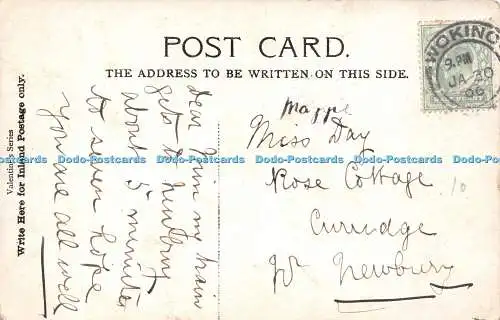 POST CARD.
THE ADDRESS TO BE WRITTEN ON THIS SIDE.
Valentine's Series
Write Here for Inland Postage only.
WOKING
9. PM
JA 30
06
dear my train
gets to Newbury
about 5 minutes
to seven hope
you are all well
Mappe
Miss Day
Rose Cottage
Curridge
Nr Newbury
10
Dodo-Postcards Dodo-Postcards Dodo-Postcards Dodo-Postcards Dodo-Postcards